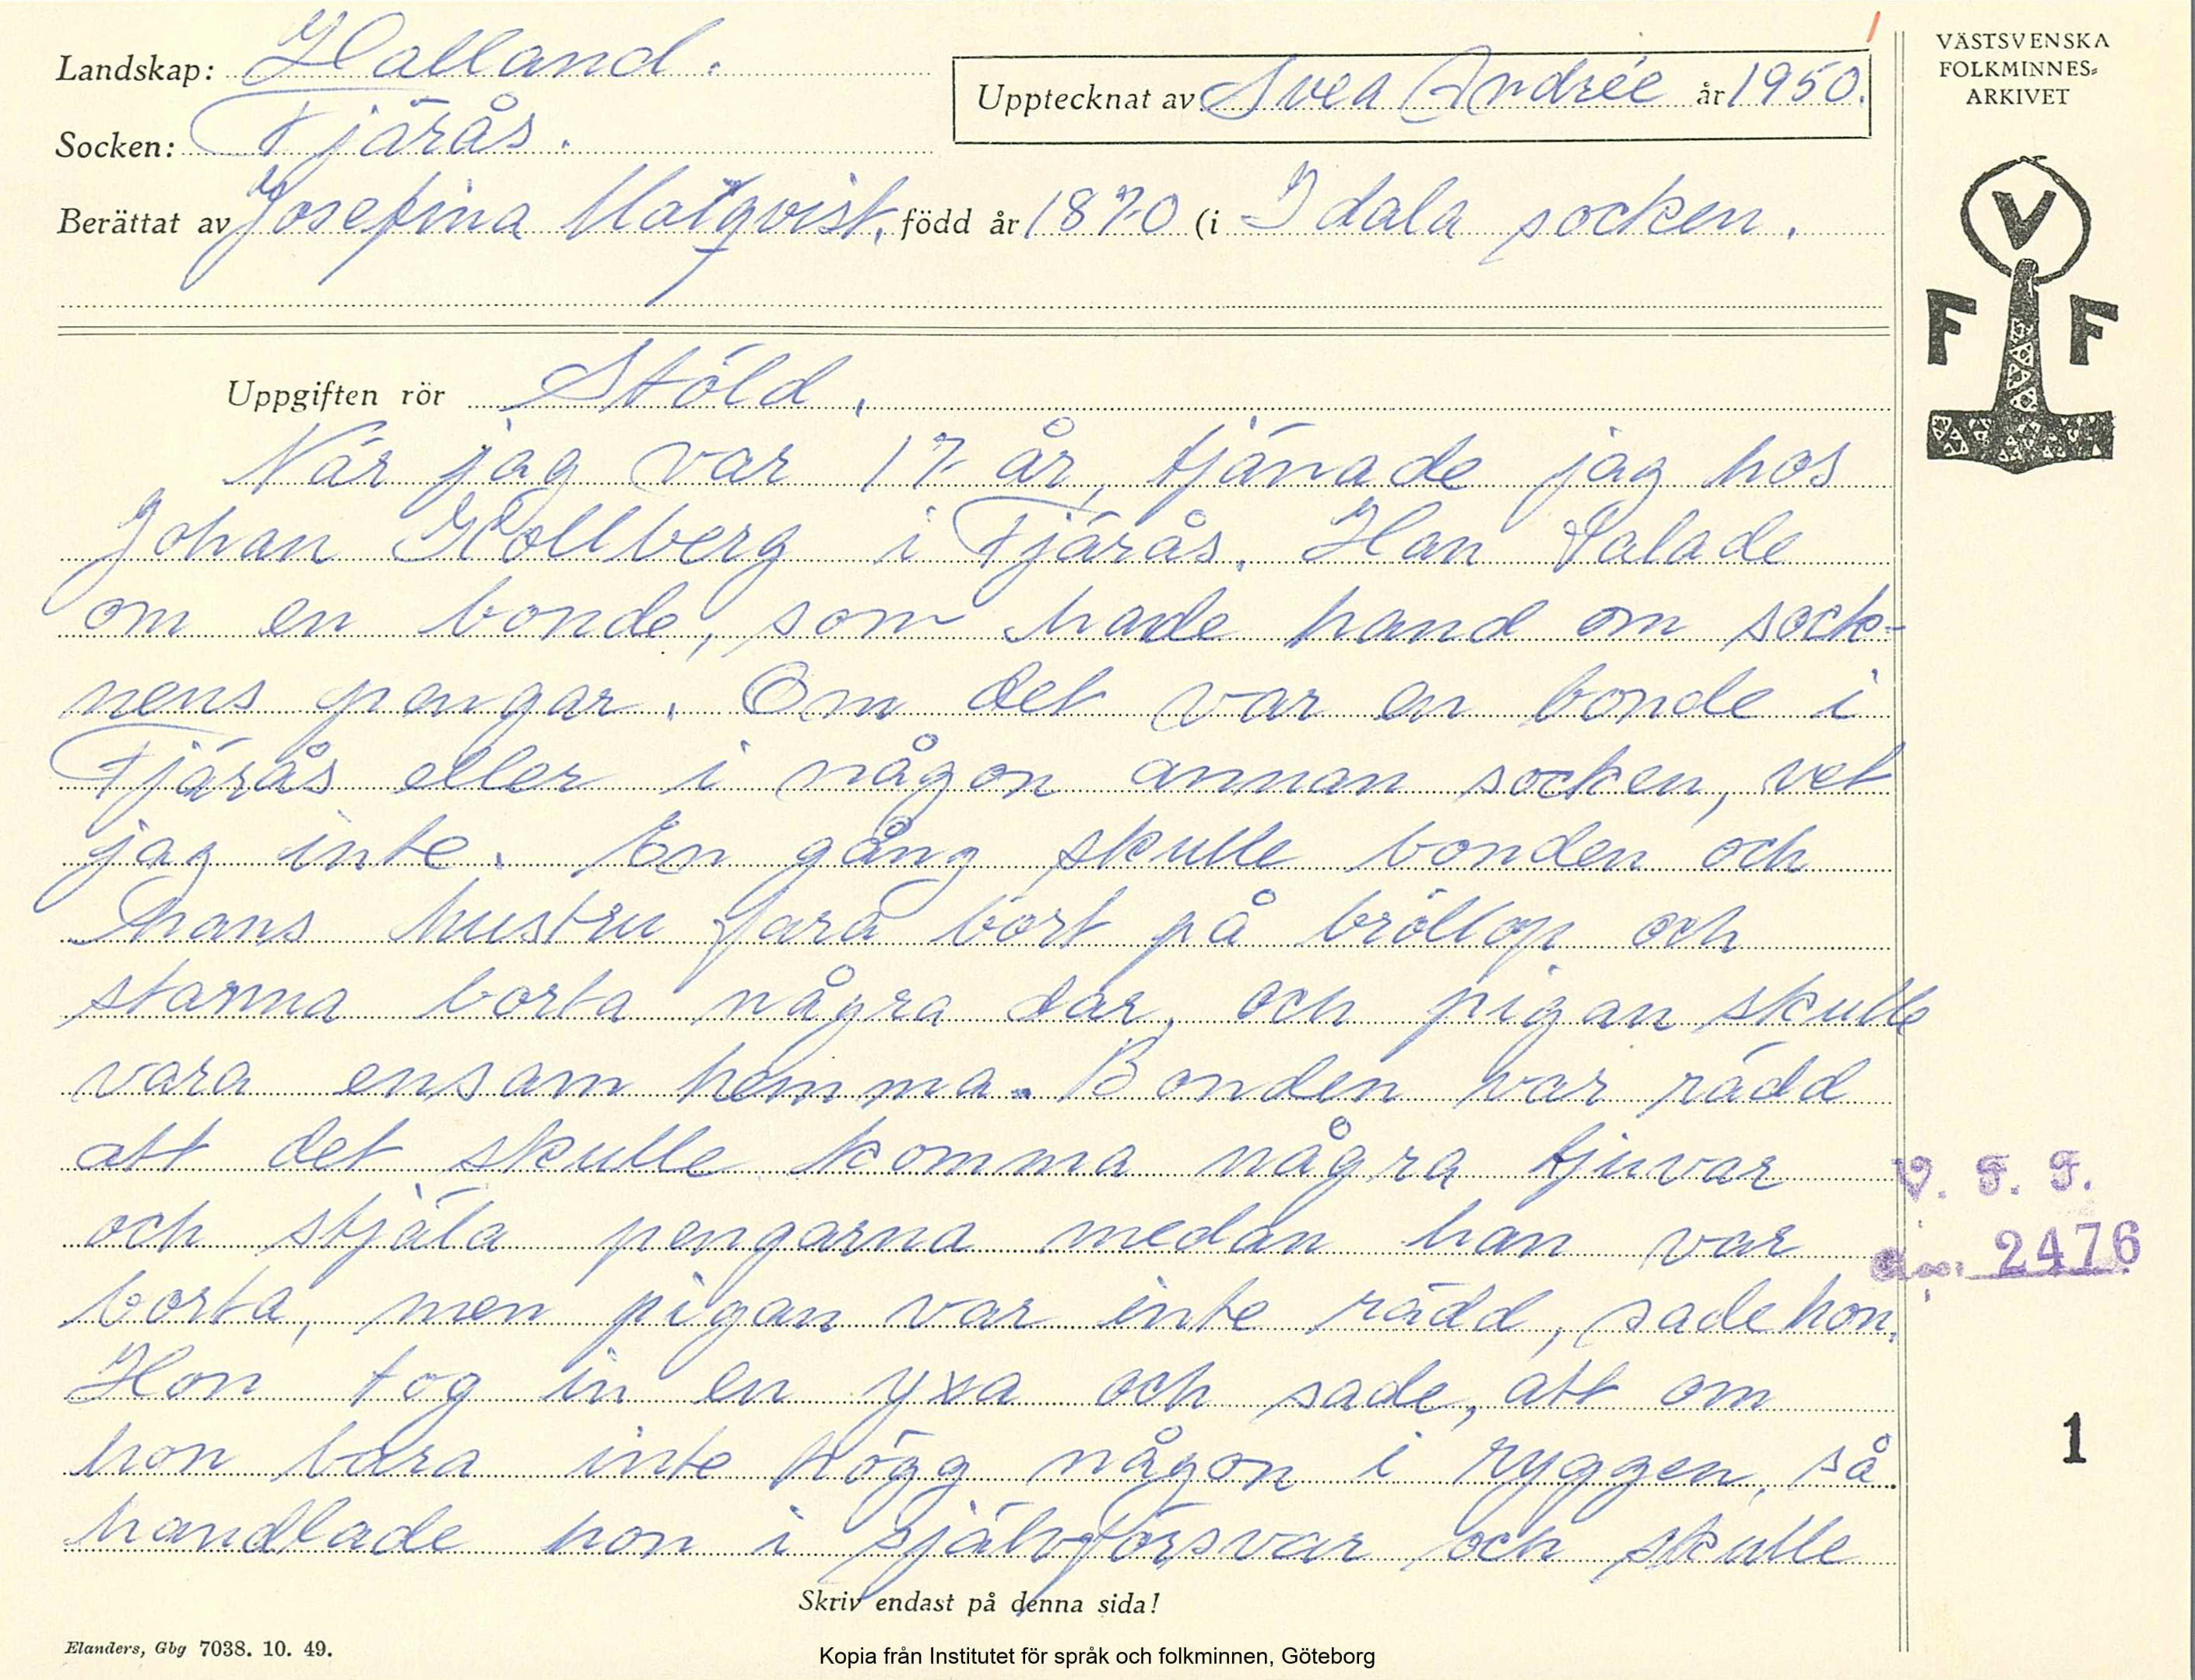 Landskap: Halland.
Socken: Fjärås.
Upptecknat av Svea Andrée år 1950.
Berättat av Josefina Malqvist, född år 1870 (i Idala socken.
VÄSTSVENSKA
FOLKMINNES-
ARKIVET
V
F F
Uppgiften rör Stöld.
När jag var 17 år, tjänade jag hos
Johan Kollberg i Fjärås. Han talade
om en bonde, som hade hand om sock-
nens pengar. Om det var en bonde i
Fjärås eller i någon annan socken, vet
jag inte. En gång skulle bonden och
hans hustru fara bort på bröllop och
stanna borta några dar, och pigan skulle
vara ensam hemma. Bonden var rädd
att det skulle komma några tjuvar
och stjäla pengarna medan han var
borta, men pigan var inte rädd, sade hon.
Hon tog in en yxa och sade, att om
hon bara inte högg någon i ryggen, så
handlade hon i självförsvar och skulle
V. F. F.
2476
1
Skriv endast på denna sida!
Elanders, Gbg 7038. 10. 49.
Kopia från Institutet för språk och folkminnen, Göteborg